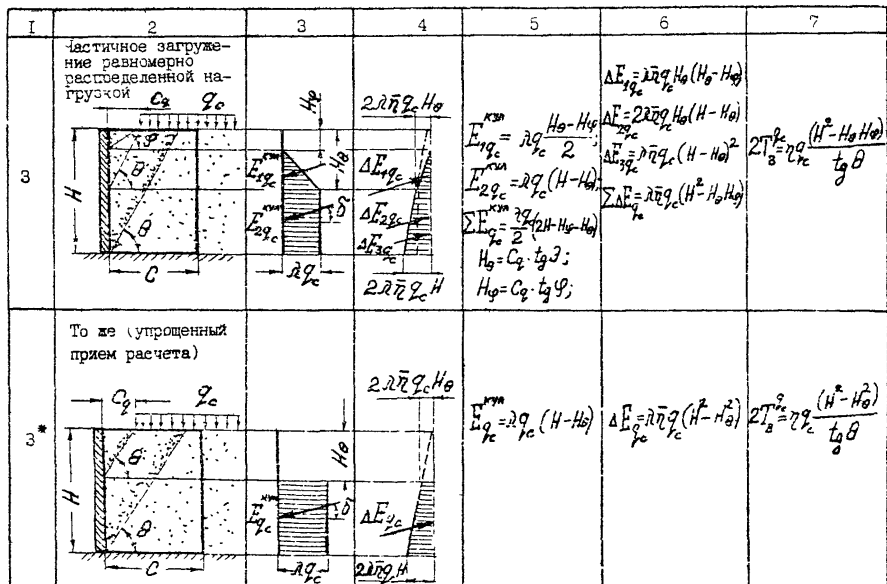 I 2 3 4 5 6 7
3
Частичное загруже-
ние равномерно
распределенной на-
грузкой
C_q q_c
φ
θ
θ
H
C
H_φ
H_θ
E_{1q_c}^{кул}
E_{2q_c}^{кул}
δ
λq_c
2λn̄q_c H_θ
ΔE_{1q_c}
ΔE_{2q_c}
ΔE_{3q_c}
2λn̄q_c H
E_{1q_c}^{кул} = λq_c (H_θ-H_φ)/2;
E_{2q_c}^{кул} = λq_c (H-H_θ)
ΣE_{q_c}^{кул} = λq_c/2 (2H-H_φ-H_θ)
H_θ = C_q · tg θ;
H_φ = C_q · tg φ;
ΔE_{1q_c} = λn̄q_c H_θ (H_θ-H_φ)
ΔE_{2q_c} = 2λn̄q_c H_θ (H-H_θ)
ΔE_{3q_c} = λn̄q_c (H-H_θ)²
ΣΔE_{q_c} = λn̄q_c (H²-H_θ H_φ)
2T_в^{q_c} = ηq_c (H²-H_θ H_φ)/tg θ
3*
То же (упрощенный
прием расчета)
C_q q_c
θ
θ
H
C
H_θ
E_{q_c}^{кул}
δ
λq_c
2λn̄q_c H_θ
ΔE_{q_c}
2λn̄q H
E_{q_c}^{кул} = λq_c (H-H_θ)
ΔE_{q_c} = λn̄q_c (H²-H_θ²)
2T_в^{q_c} = ηq_c (H²-H_θ²)/tg θ